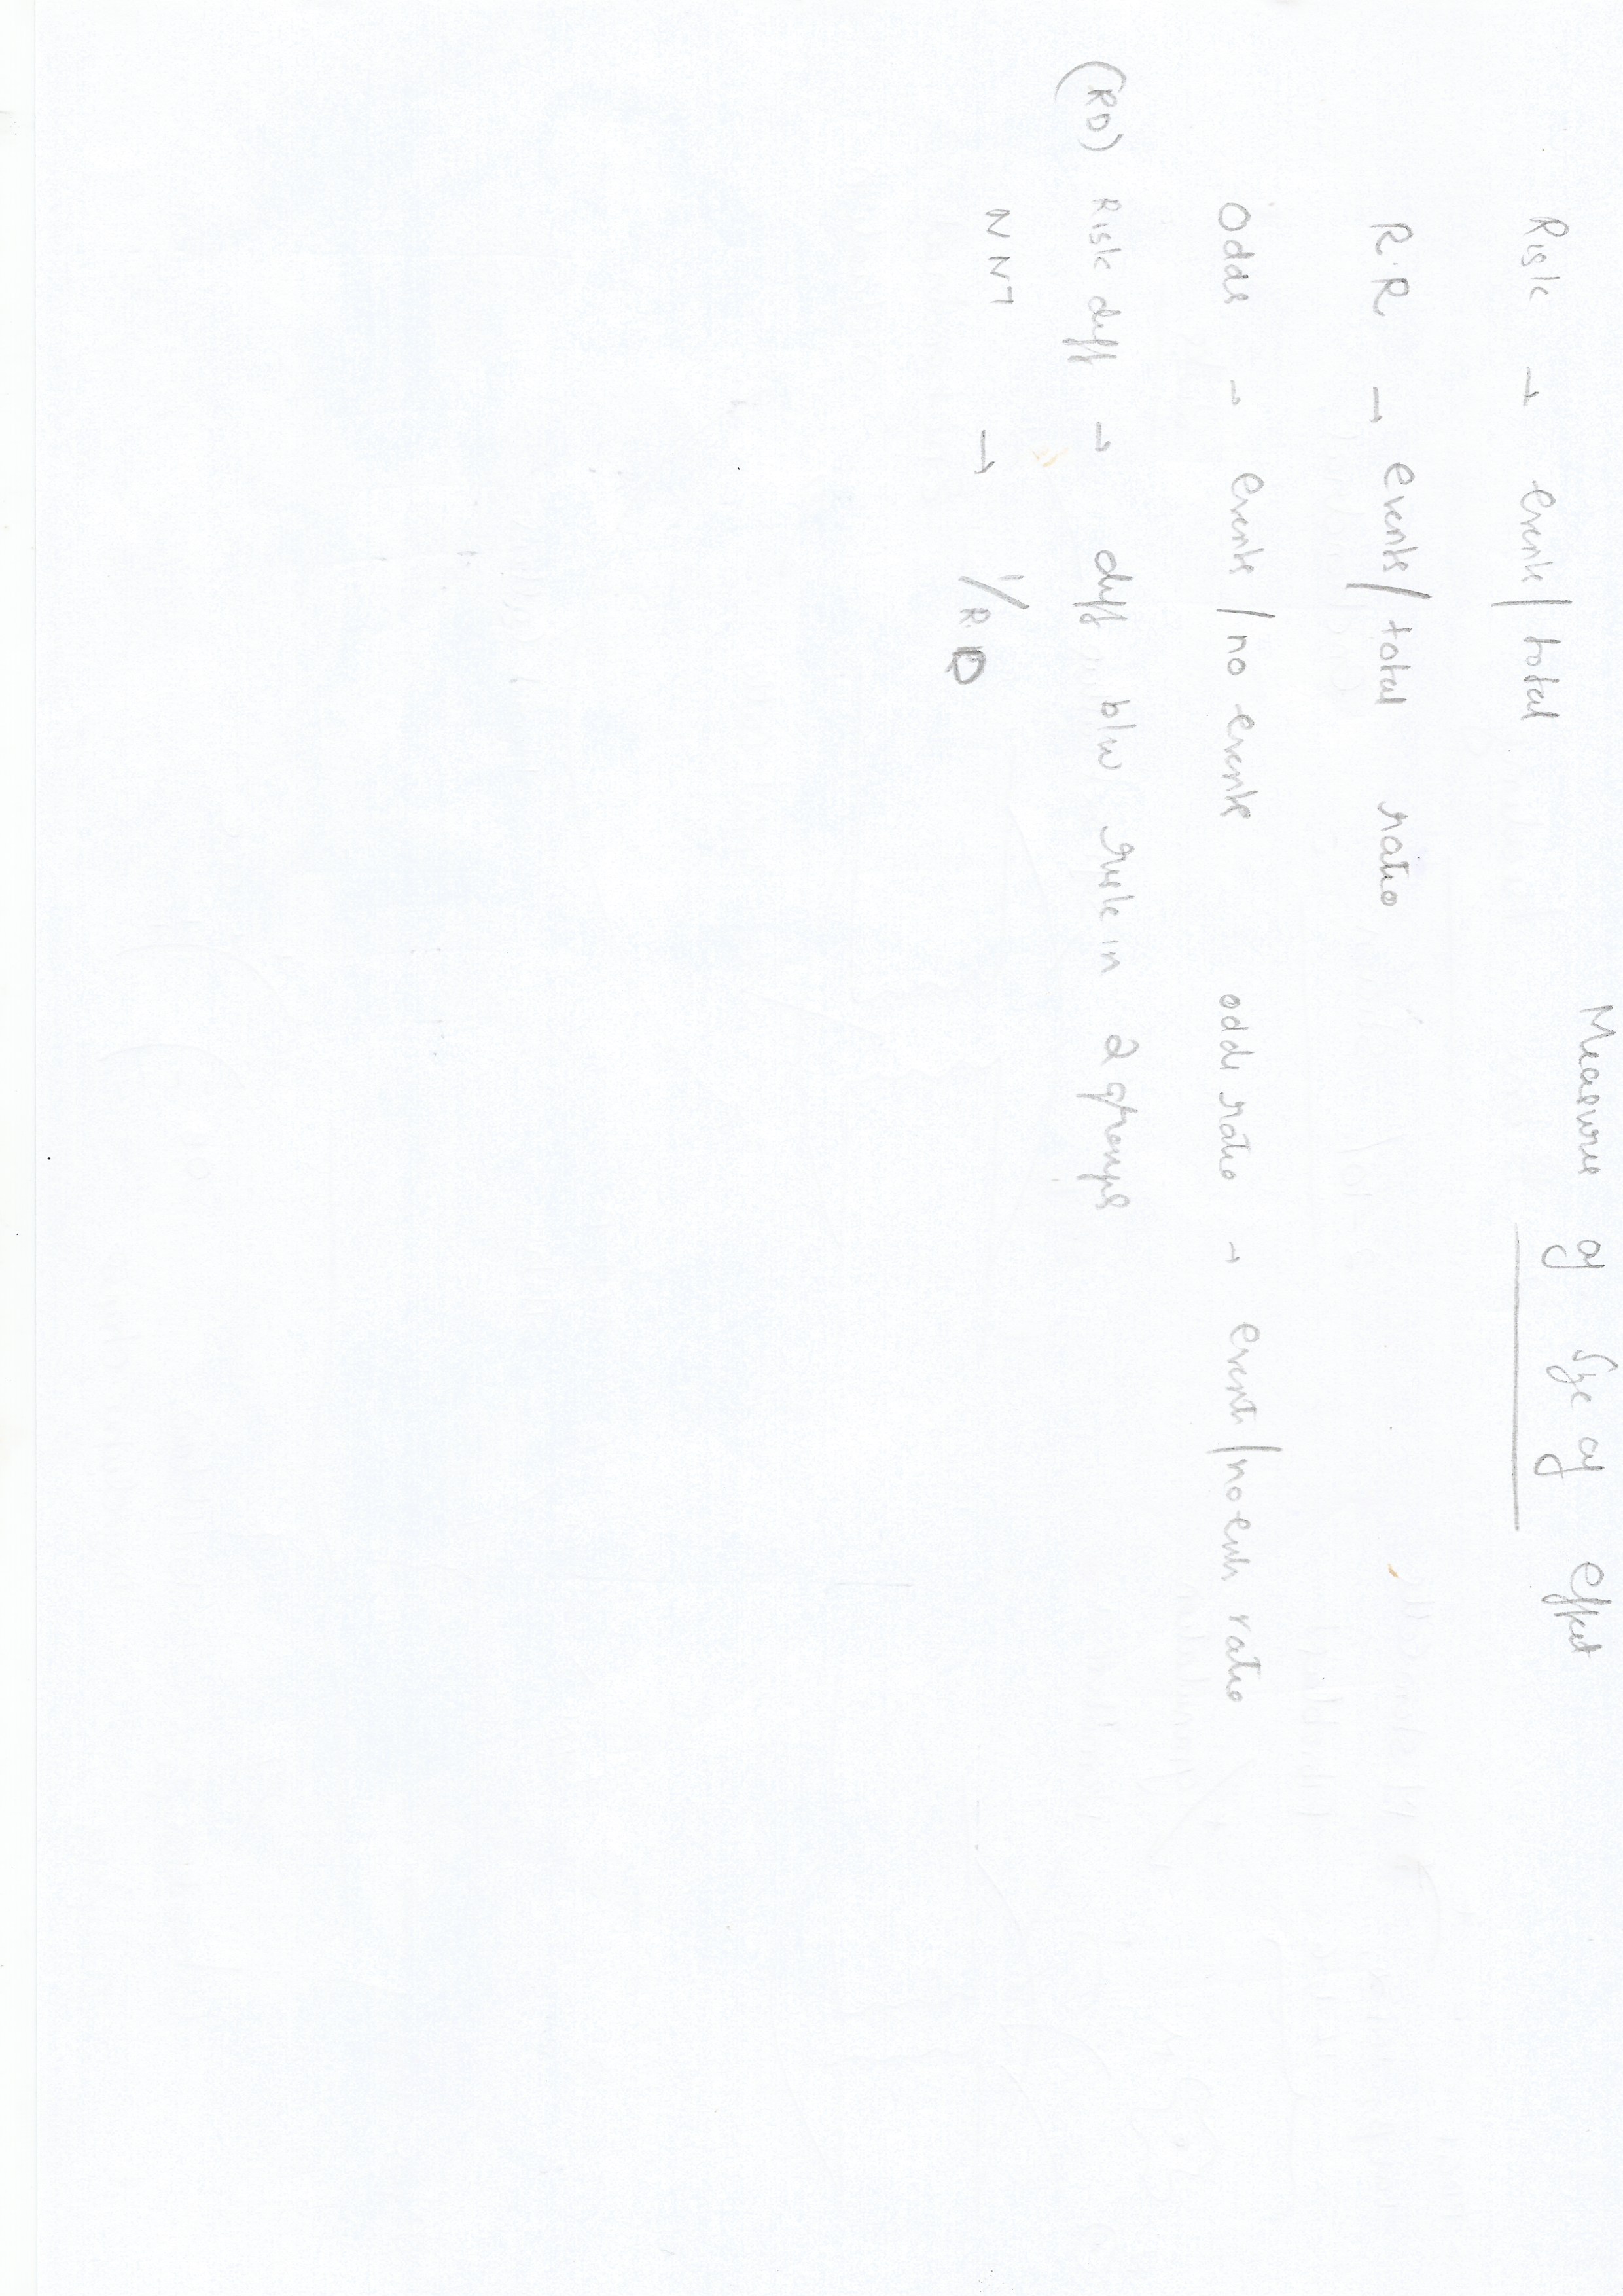 Measures of size of effect
Risk → events/total
R.R → events/total ratio
Odds → events/no events odds ratio → events/no events ratio
(RD) Risk diff → diff b/w risk in 2 groups
NNT → 1/R.D